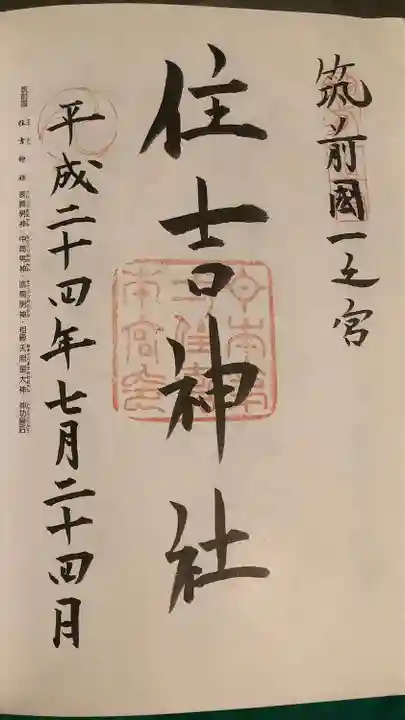 筑前國一之宮
住吉神社
平成二十四年七月二十四月
筑前國 住吉神社 表筒男神・中筒男神・底筒男神・相殿 天照皇大神 神功皇后